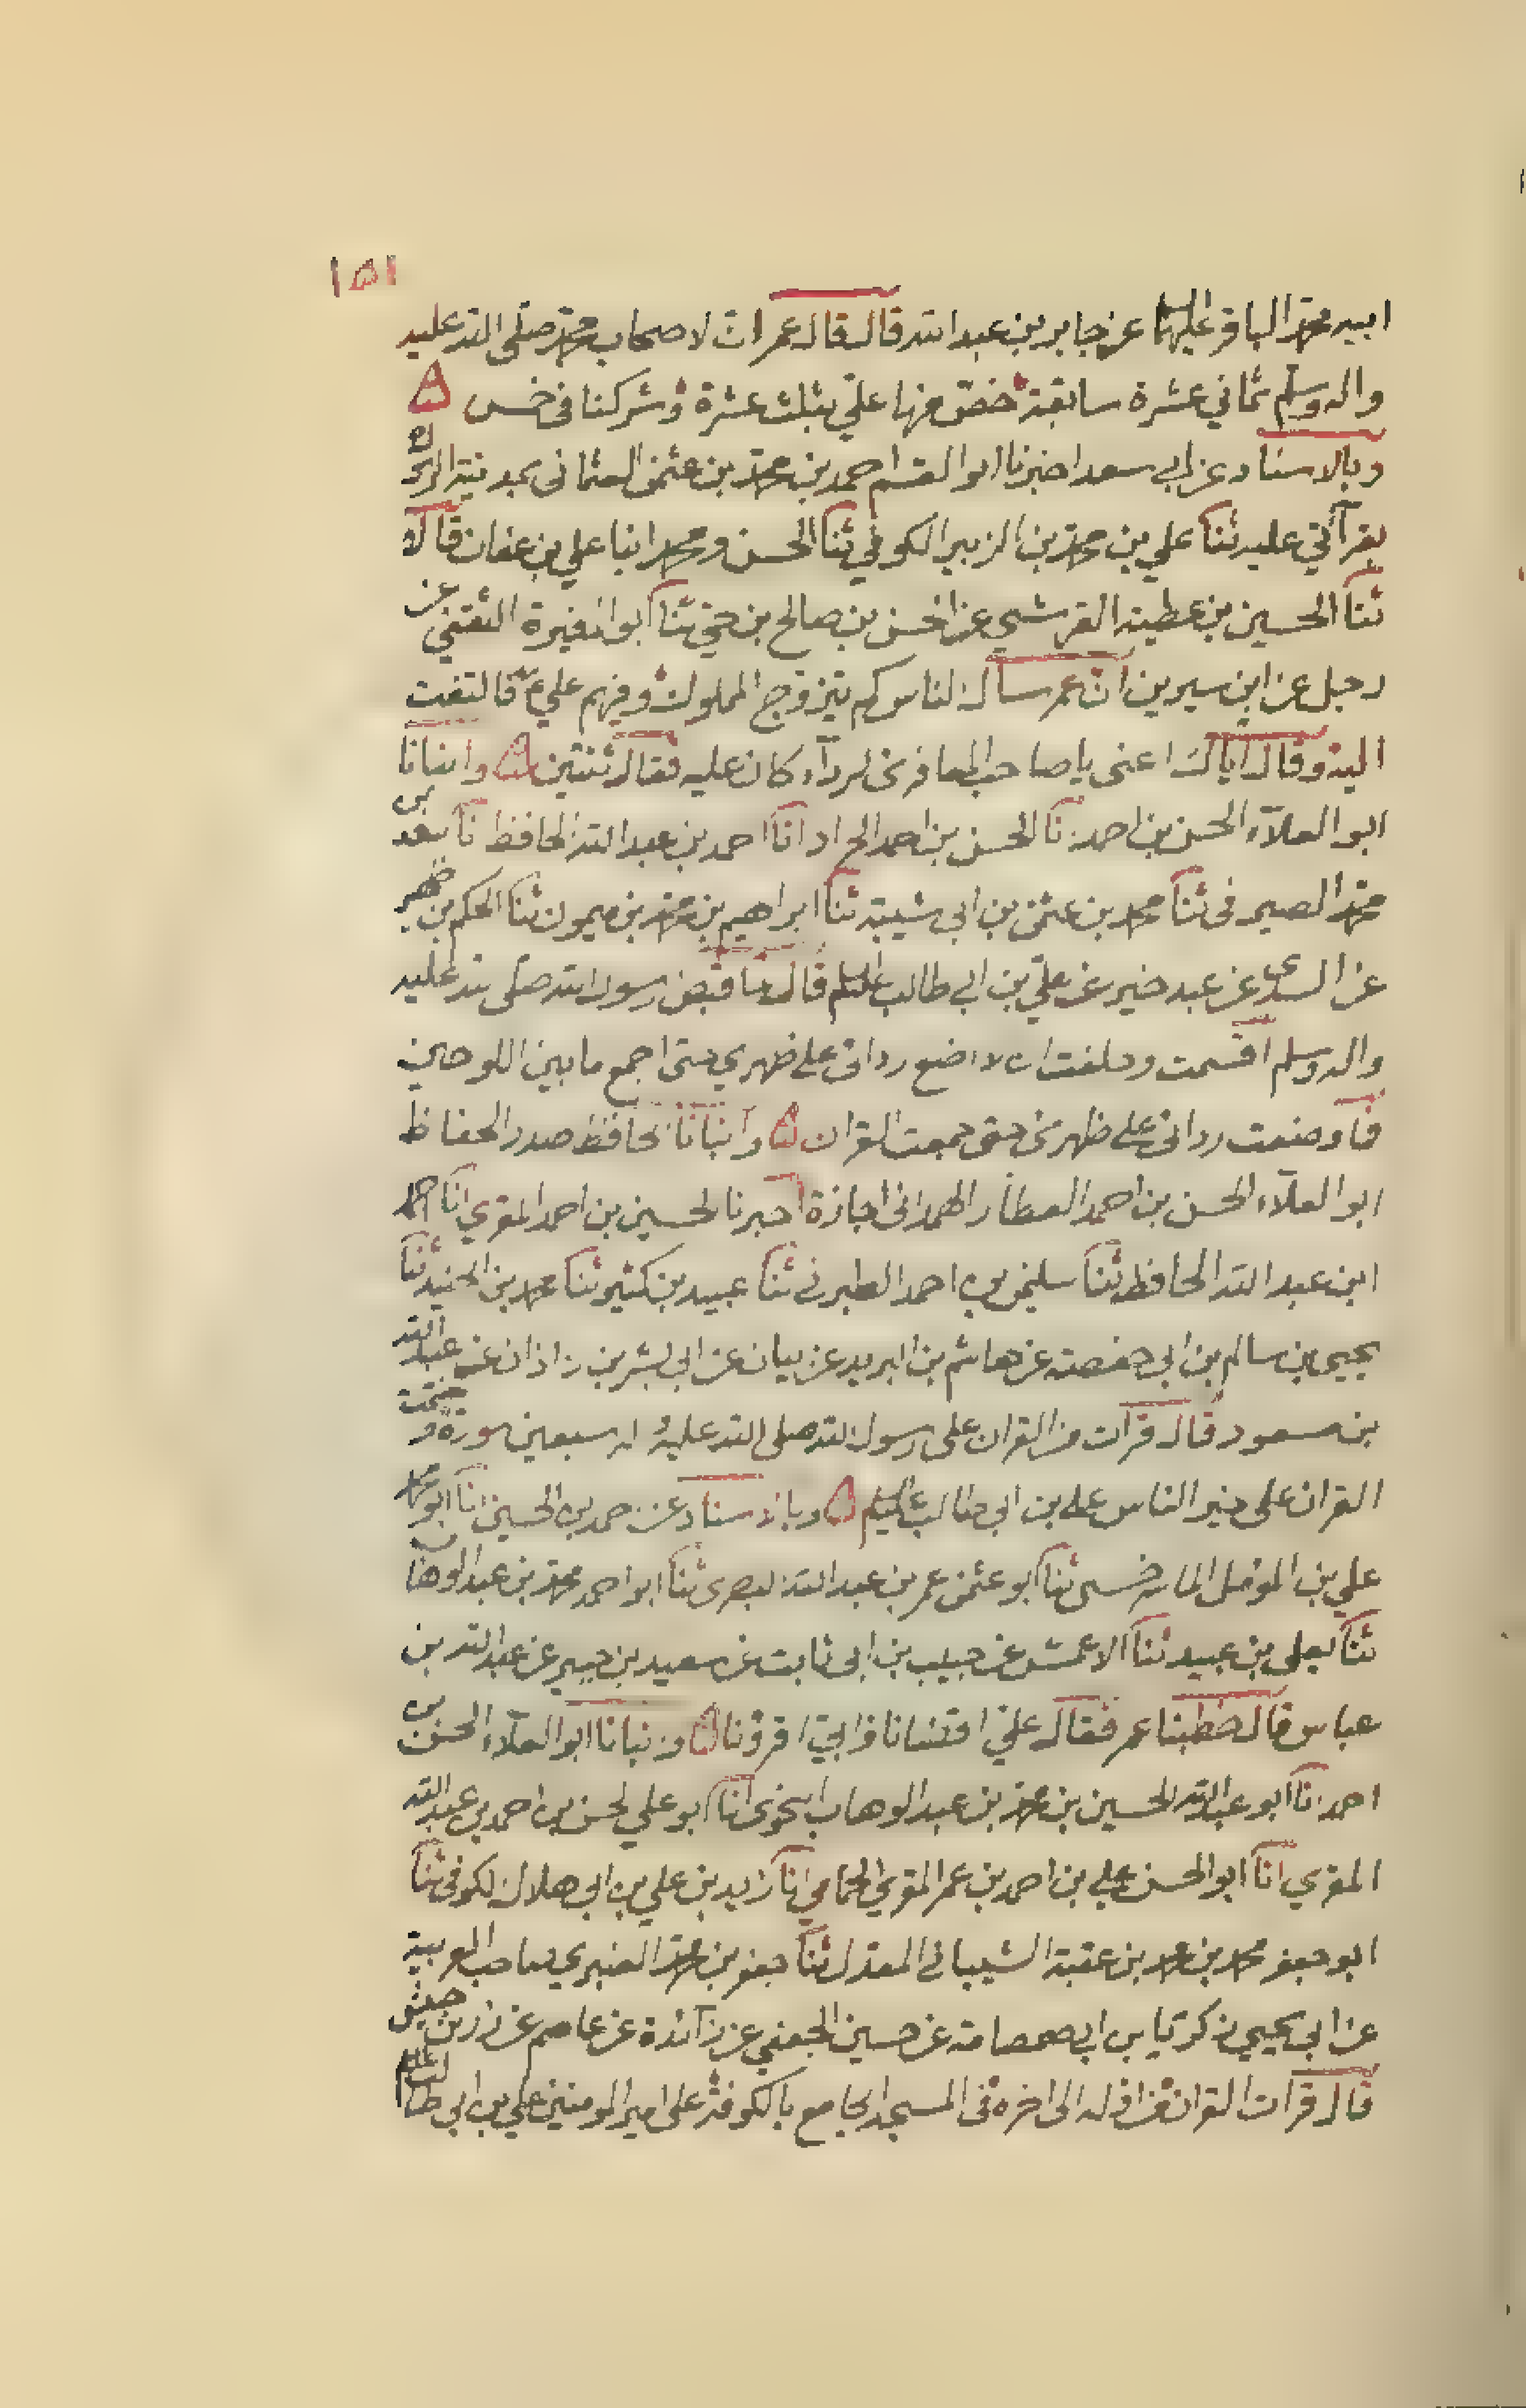 ١٥١
ابيه محمد الباقر عليهما السلم عن جابر بن عبد الله قال قال عمر ان لاصحاب محمد صلى الله عليه
واله وسلم ثماني عشرة سابقة خص منها علي بثلث عشرة وشركنا في خمس
وبالاسناد عن ابي سعد اخبرنا ابو القسم احمد بن محمد بن عثمن العثماني بمدينة الري
بقرآتي عليه ثنا علي بن محمد بن الزبير الكوفي ثنا الحسن ومحمد ابنا علي بن عفان قالا
ثنا الحسين بن عطية القرشي عن الحسن بن صالح بن حي ثنا ابو المغيرة الثقفي عن
رجل عن ابن سيرين ان عمر سال الناس كم يتزوج المملوك وفيهم علي ع م فالتفت
اليه وقال اياك اعني يا صاحب المعافري لردآء كان عليه فقال ثنتين وانبانا
ابو العلآء الحسن بن احمد نا الحسن بن احمد الحداد انا احمد بن عبد الله الحافظ نا سعد بن
محمد الصيرفي ثنا محمد بن عثمن بن ابي شيبة ثنا ابراهيم بن محمد بن ميمون ثنا الحكم بن ظهير
عن السدي عن عبد خير عن علي بن ابي طالب عليه السلم قال لما قبض رسول الله صلى الله عليه
واله وسلم اقسمت وحلفت ان لا اضع ردائي على ظهري حتى اجمع ما بين اللوحين
فما وضعت ردائي على ظهري حتى جمعت القران وانبانا الحافظ صدر الحفاظ
ابو العلآء الحسن بن احمد العطار الهمداني اجازة اخبرنا الحسين بن احمد المقري انا احمد
ابن عبد الله الحافظ ثنا سليمن بن احمد الطبراني ثنا عبيد بن كثير ثنا محمد بن الجنيد ثنا
يحيى بن سالم بن ابي حفصة عن هاشم بن البريد عن بيان عن ابي بشر بن زاذان عن عبد الله
بن مسعود قال قرأت من القران على رسول الله صلى الله عليه واله سبعين سورة وختمت
القران على خير الناس علي بن ابي طالب عليه السلم وبالاسناد عن احمد بن الحسين انا ابو محمد
علي بن المؤمل الماسرخسي ثنا ابو عثمن عمر بن عبد الله البصري ثنا ابو احمد محمد بن عبد الوهاب
ثنا يعلى بن عبيد ثنا الاعمش عن حبيب بن ابي ثابت عن سعيد بن جبير عن عبد الله بن
عباس قال خطبنا عمر فقال علي اقضانا وابي اقرؤنا وانبانا ابو العلآء الحسن بن
احمد انا ابو عبد الله الحسين بن محمد بن عبد الوهاب النحوي انا ابو علي الحسن بن احمد بن عبد الله
المقري انا ابو الحسن علي بن احمد بن عمر المقري الحمامي انا زيد بن علي بن ابي هلال الكوفي ثنا
ابو جعفر محمد بن محمد بن عقبة الشيباني المعدل ثنا جعفر بن محمد العنبري صاحب العربية
عن ابي يحيى زكريا بن ابي صمصامة عن حسين الجعفي عن زآئدة عن عاصم عن زر بن حبيش
قال قرات القران من اوله الى اخره في المسجد الجامع بالكوفة على امير المومنين علي بن ابي طالب عليه السلم